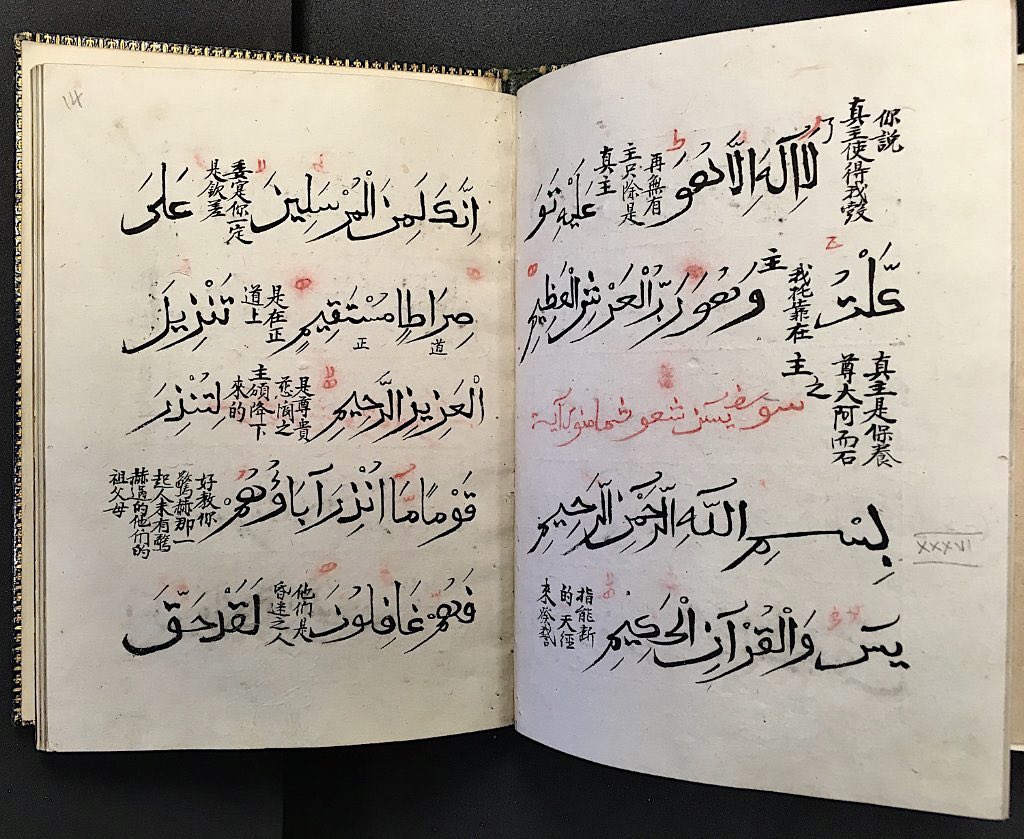 你説
真主使得我彀
了
لَا اِلٰهَ اِلَّا هُوَ
再無有
主只除是
真主
عَلَيْهِ تَوَ
كَّلْتُ
我托靠在
主
وَهُوَ رَبُّ الْعَرْشِ الْعَظِيمِ
真主是保養
尊大阿而石
之
主
بِسْمِ اللّٰهِ الرَّحْمٰنِ الرَّحِيمِ
XXXVI
يٰسٓ وَالْقُرْآنِ الْحَكِيمِ
指能斷
的天經
來發誓
14
اِنَّكَ لَمِنَ الْمُرْسَلِينَ
委寔你一定
是欽差
عَلٰى
صِرَاطٍ مُسْتَقِيمٍ
道
正
是在正
道上
تَنْزِيلَ
الْعَزِيزِ الرَّحِيمِ
是尊貴
慈憫之
主頒降下
來的
لِتُنْذِرَ
قَوْمًا مَا اُنْذِرَ آبَاؤُهُمْ
好教你
驚赫那一
起人未有驚
赫過的他們的
祖父母
فَهُمْ غَافِلُونَ
他們是
昏迷之人
لَقَدْ حَقَّ